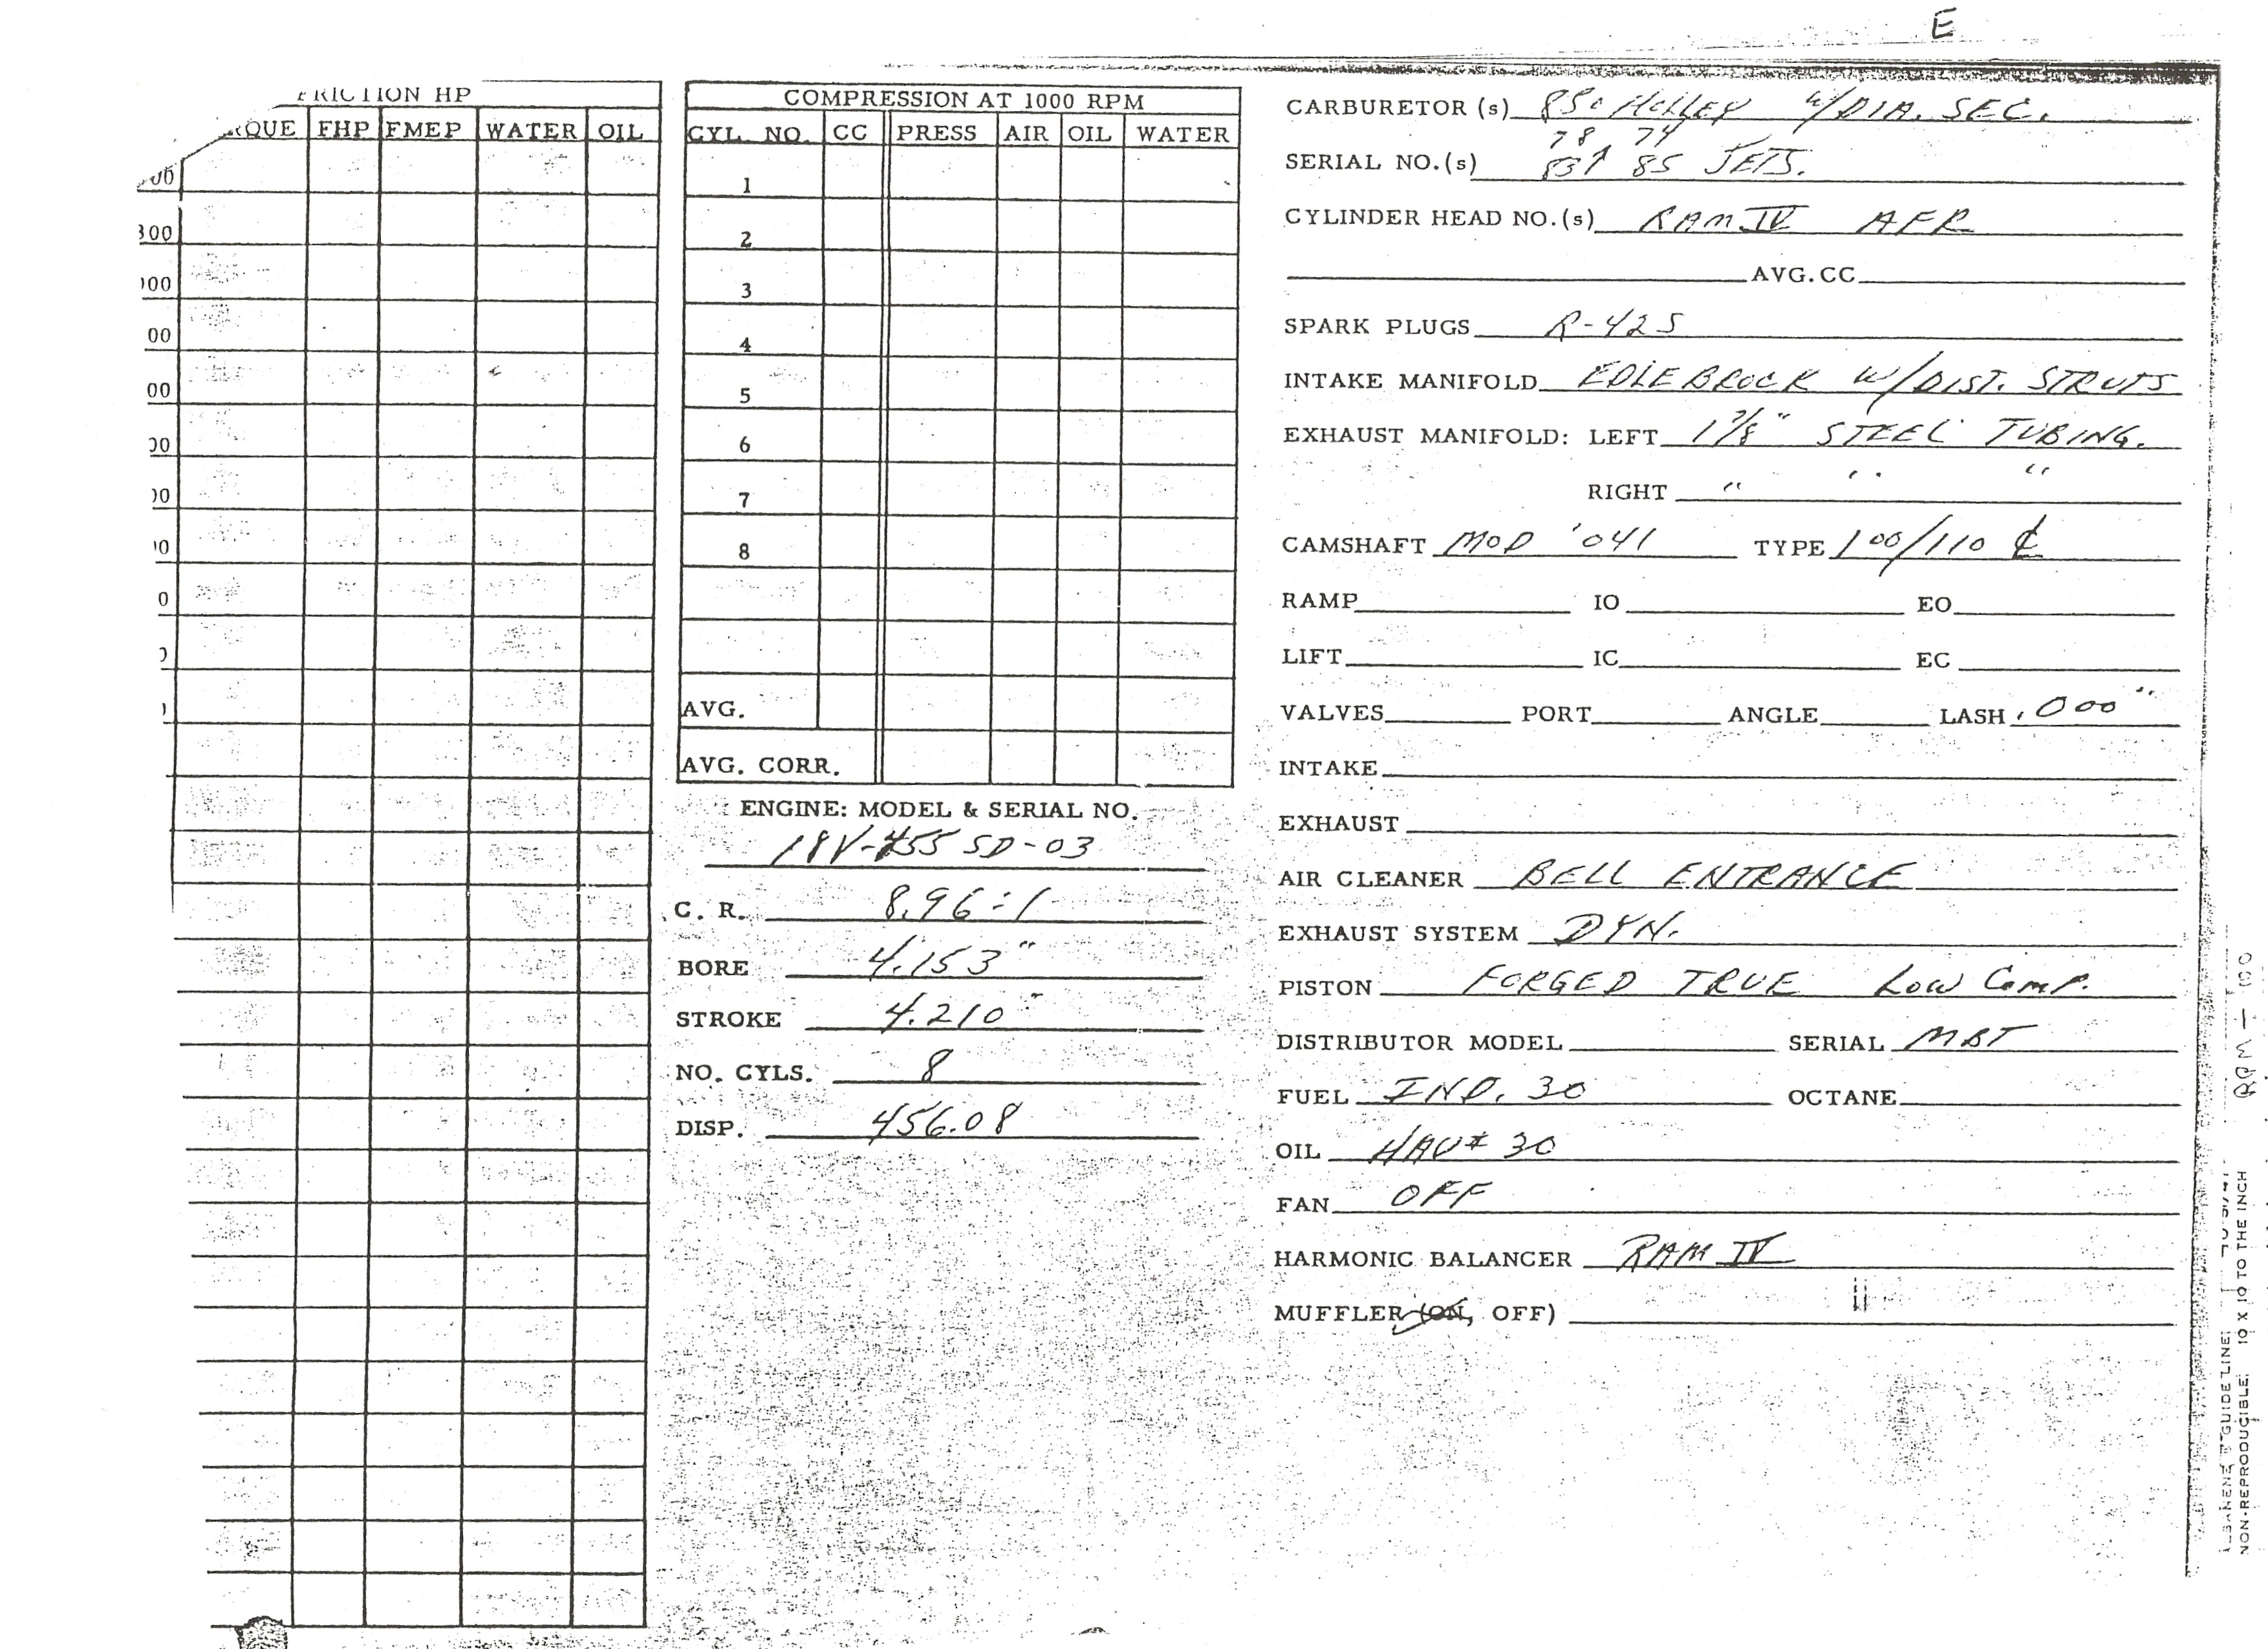 E
FRICTION HP
QUE FHP FMEP WATER OIL
00
300
00
00
00
00
00
00
0
COMPRESSION AT 1000 RPM
CYL. NO. CC PRESS AIR OIL WATER
1
2
3
4
5
6
7
8
AVG.
AVG. CORR.
ENGINE: MODEL & SERIAL NO.
18V-455 SD-03
C. R. 8.96:1
BORE 4.153"
STROKE 4.210"
NO. CYLS. 8
DISP. 456.08
CARBURETOR (s) 850 HOLLEY W/DIA. SEC.
78 74
SERIAL NO.(s) 85 JETS.
CYLINDER HEAD NO.(s) RAM IV AFR
AVG.CC
SPARK PLUGS R-42S
INTAKE MANIFOLD EDLEBROCK W/DIST. STRUTS
EXHAUST MANIFOLD: LEFT 1 7/8" STEEL TUBING.
RIGHT " " "
CAMSHAFT MOD '041 TYPE 100/110 ℄
RAMP IO EO
LIFT IC EC
VALVES PORT ANGLE LASH .000"
INTAKE
EXHAUST
AIR CLEANER BELL ENTRANCE
EXHAUST SYSTEM DYN.
PISTON FORGED TRUE LOW COMP.
DISTRIBUTOR MODEL SERIAL MBT
FUEL IND. 30 OCTANE
OIL HAV# 30
FAN OFF
HARMONIC BALANCER RAM IV
MUFFLER (ON, OFF)
RPM - 100
GUIDELINE
NON-REPRODUCIBLE 10 X 10 TO THE INCH